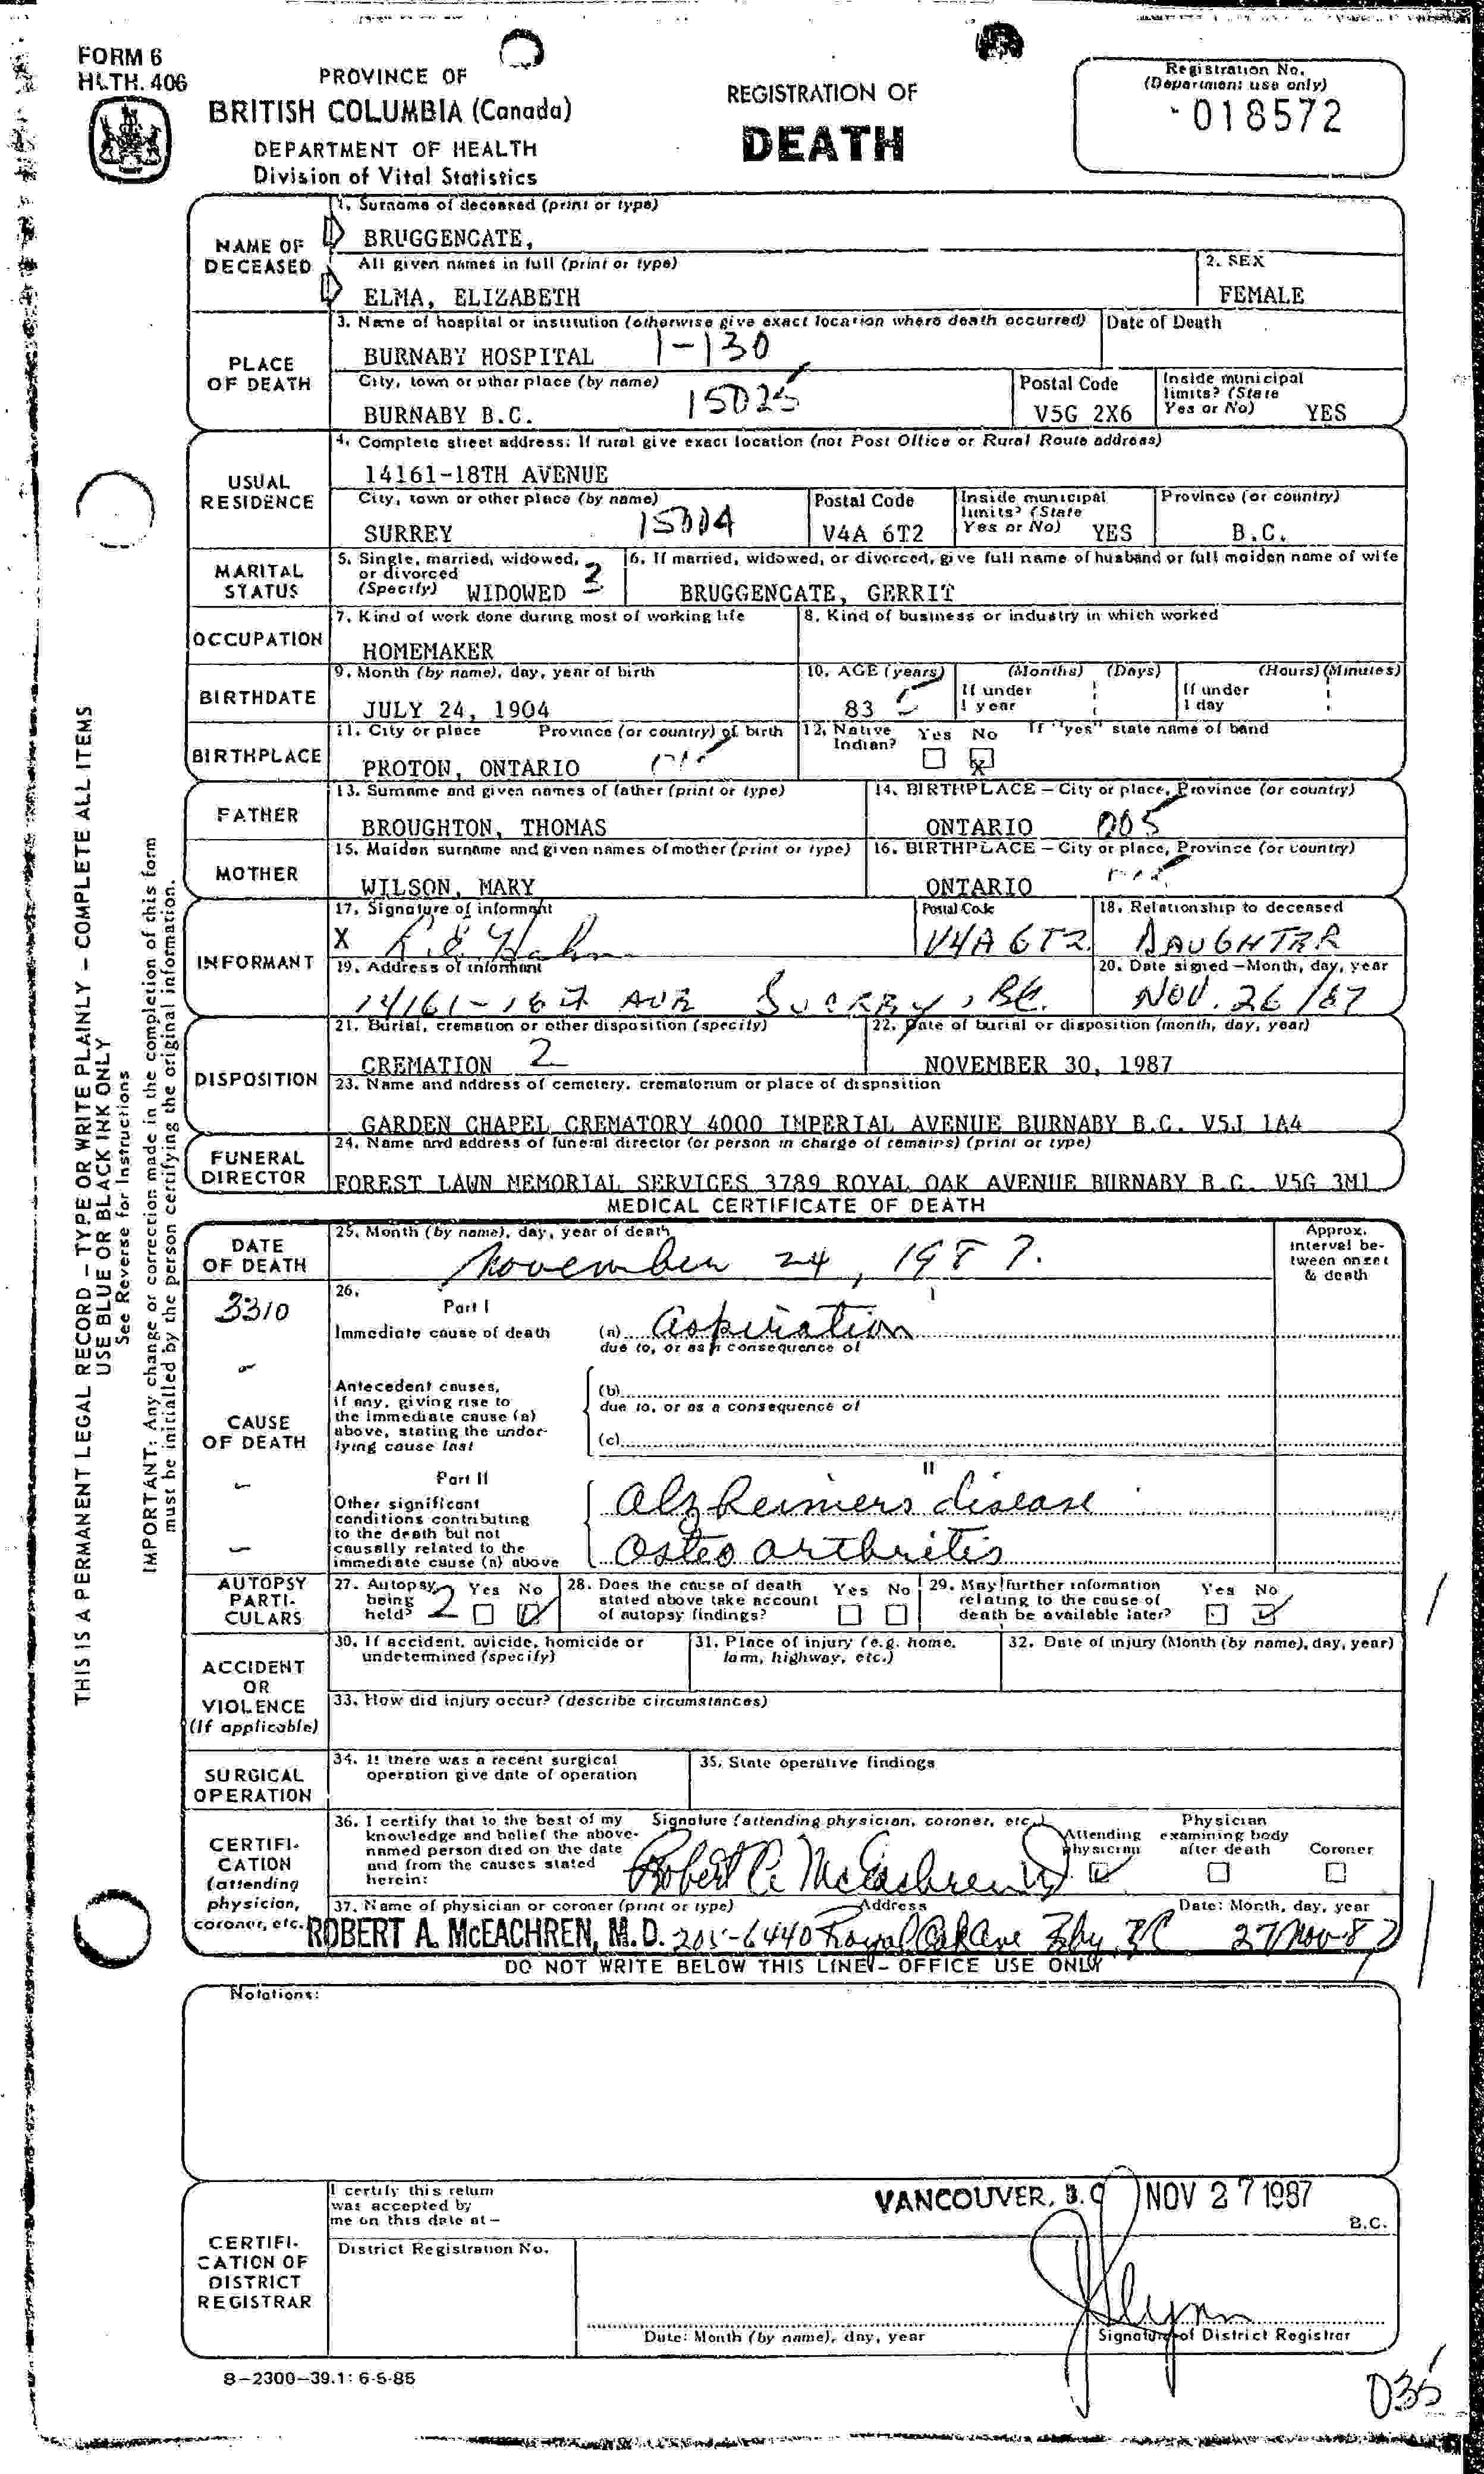 FORM 6
HLTH. 406
PROVINCE OF
BRITISH COLUMBIA (Canada)
DEPARTMENT OF HEALTH
Division of Vital Statistics
REGISTRATION OF
DEATH
Registration No.
(Department use only)
018572
NAME OF DECEASED
1. Surname of deceased (print or type)
BRUGGENCATE,
All given names in full (print or type)
ELMA, ELIZABETH
2. SEX
FEMALE
PLACE OF DEATH
3. Name of hospital or institution (otherwise give exact location where death occurred)
BURNABY HOSPITAL 1-130
Date of Death
City, town or other place (by name)
BURNABY B.C. 15025
Postal Code
V5G 2X6
Inside municipal limits? (State Yes or No) YES
USUAL RESIDENCE
4. Complete street address: If rural give exact location (not Post Office or Rural Route address)
14161-18TH AVENUE
City, town or other place (by name)
SURREY
Postal Code
V4A 6T2
Inside municipal limits? (State Yes or No) YES
Province (or country)
B.C.
MARITAL STATUS
5. Single, married, widowed, or divorced (Specify) WIDOWED 2
6. If married, widowed, or divorced, give full name of husband or full maiden name of wife
BRUGGENCATE, GERRIT
OCCUPATION
7. Kind of work done during most of working life
HOMEMAKER
8. Kind of business or industry in which worked
BIRTHDATE
9. Month (by name), day, year of birth
JULY 24, 1904
10. AGE (years)
83
If under 1 year
(Months) (Days)
If under 1 day
(Hours) (Minutes)
BIRTHPLACE
11. City or place Province (or country) of birth
PROTON, ONTARIO
12. Native Indian? Yes No
X
If "yes" state name of band
FATHER
13. Surname and given names of father (print or type)
BROUGHTON, THOMAS
14. BIRTHPLACE – City or place, Province (or country)
ONTARIO 005
MOTHER
15. Maiden surname and given names of mother (print or type)
WILSON, MARY
16. BIRTHPLACE – City or place, Province (or country)
ONTARIO
INFORMANT
17. Signature of informant
X
Postal Code
V4A 6T2
18. Relationship to deceased
DAUGHTER
19. Address of informant
14161-18th AVE SURREY, BC.
20. Date signed – Month, day, year
NOV. 26/87
DISPOSITION
21. Burial, cremation or other disposition (specify)
CREMATION 2
22. Date of burial or disposition (month, day, year)
NOVEMBER 30, 1987
23. Name and address of cemetery, crematorium or place of disposition
GARDEN CHAPEL CREMATORY 4000 IMPERIAL AVENUE BURNABY B.C. V5J 1A4
FUNERAL DIRECTOR
24. Name and address of funeral director (or person in charge of remains) (print or type)
FOREST LAWN MEMORIAL SERVICES 3789 ROYAL OAK AVENUE BURNABY B.C. V5G 3M1
MEDICAL CERTIFICATE OF DEATH
DATE OF DEATH
25. Month (by name), day, year of death
November 24, 1987.
Approx. interval between onset & death
3310
CAUSE OF DEATH
26.
Part I
Immediate cause of death
(a) Aspiration
due to, or as a consequence of
Antecedent causes, if any, giving rise to the immediate cause (a) above, stating the underlying cause last
(b)
due to, or as a consequence of
(c)
Part II
Other significant conditions contributing to the death but not causally related to the immediate cause (a) above
II
Alzheimers disease
Osteo arthritis
AUTOPSY PARTICULARS
27. Autopsy being held? 2 Yes No
28. Does the cause of death stated above take account of autopsy findings? Yes No
29. May further information relating to the cause of death be available later? Yes No
ACCIDENT OR VIOLENCE (If applicable)
30. If accident, suicide, homicide or undetermined (specify)
31. Place of injury (e.g. home, farm, highway, etc.)
32. Date of injury (Month (by name), day, year)
33. How did injury occur? (describe circumstances)
SURGICAL OPERATION
34. If there was a recent surgical operation give date of operation
35. State operative findings
CERTIFICATION (attending physician, coroner, etc.)
36. I certify that to the best of my knowledge and belief the above-named person died on the date and from the causes stated herein:
Signature (attending physician, coroner, etc.)
Attending physician
Physician examining body after death
Coroner
37. Name of physician or coroner (print or type)
Address
Date: Month, day, year
ROBERT A. McEACHREN, M.D. 205-6440 Royal Oak Ave Bby BC 27 Nov 87
DO NOT WRITE BELOW THIS LINE – OFFICE USE ONLY
Notations:
CERTIFICATION OF DISTRICT REGISTRAR
I certify this return was accepted by me on this date at –
VANCOUVER, B.C. NOV 27 1987
B.C.
District Registration No.
Date: Month (by name), day, year
Signature of District Registrar
8-2300-39.1: 6-5-85
035
THIS IS A PERMANENT LEGAL RECORD – TYPE OR WRITE PLAINLY – COMPLETE ALL ITEMS
USE BLUE OR BLACK INK ONLY
See Reverse for Instructions
IMPORTANT: Any change or correction made in the completion of this form
must be initialled by the person certifying the original information.